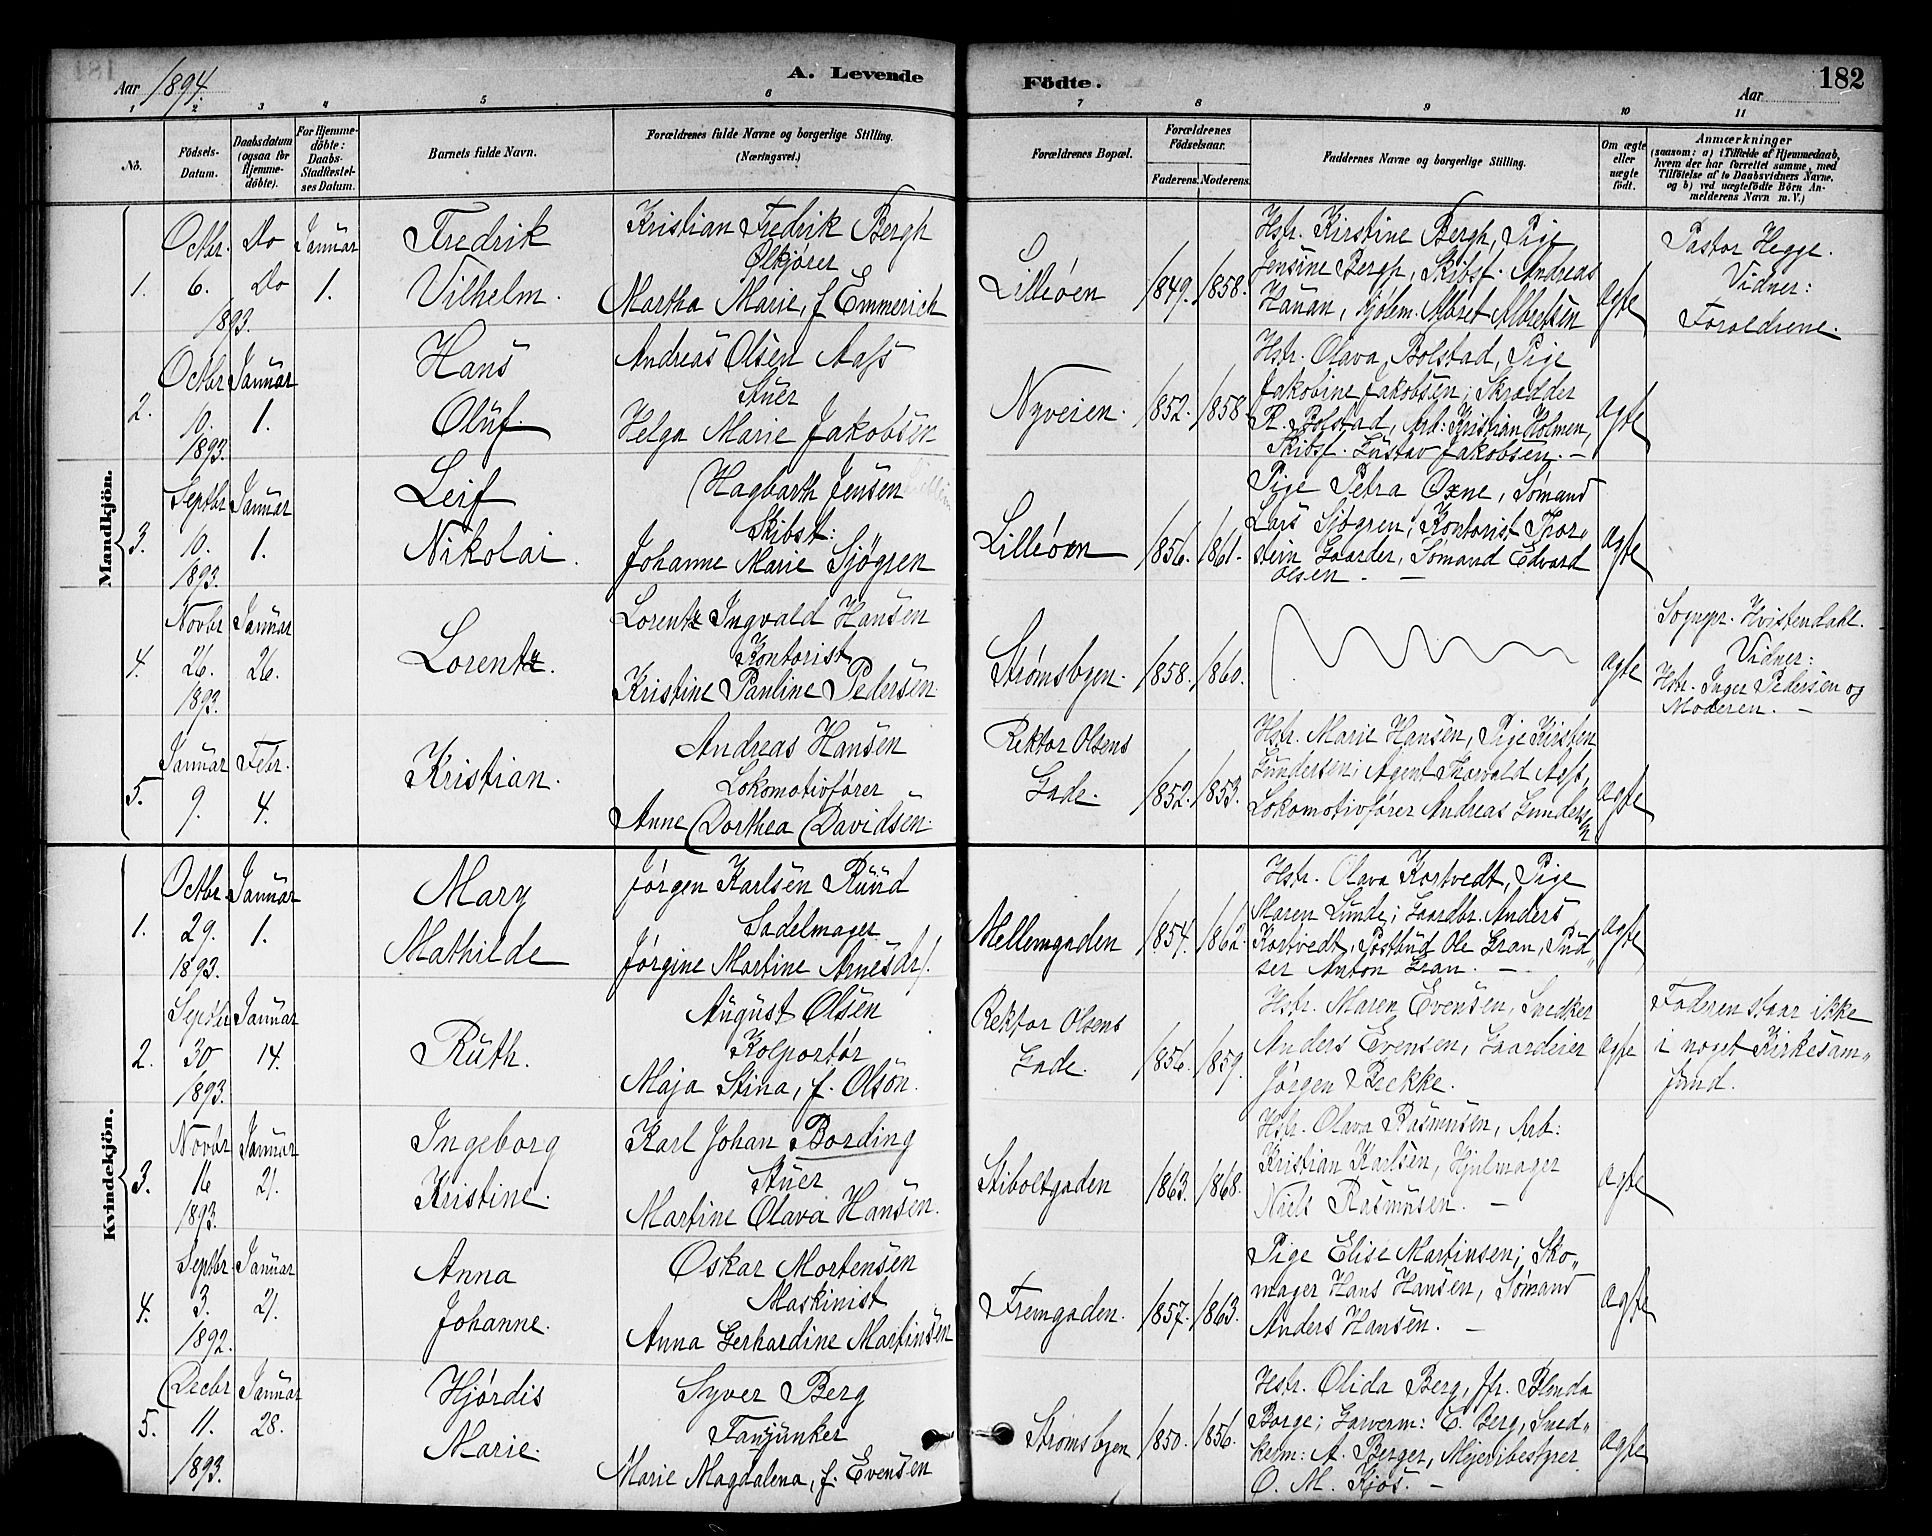 Aar 1894.
A. Levende
Födte.
Aar
182
1 2 3 4 5 6 7 8 9 10 11
No.
Födsels-Datum.
Daabsdatum (ogsaa for Hjemme-döbte).
For Hjemme-döbte: Daabs-Stadfæstel-ses Datum.
Barnets fulde Navn.
Forældrenes fulde Navne og borgerlige Stilling.
(Næringsvei.)
Forældrenes Bopæl.
Forældrenes Födselsaar.
Faderens. Moderens.
Faddernes Navne og borgerlige Stilling.
Om ægte eller uægte födt.
Anmærkninger
(saasom: a) i Tilfælde af Hjemmedaab,
hvem der har forrettet samme, med
Tilföielse af to Daabsvidners Navne.
og b) ved uægtefödte Börn An-
melderens Navn m. V.)
Mandkjön.
1.
Octbr.
6.
1893.
Do
Do
Januar
1.
Fredrik
Vilhelm.
Kristian Fredrik Bergh
Ølkjører
Martha Marie, f. Emmerich
Lilleøen
1849. 1858.
Hstr. Kirstine Bergh, Pige
Jensine Bergh, Skibsf. Andreas
Hanan, Sjølem. Albret Albretsen
ægte
Pastor Hegge.
Vidner:
Foreldrene.
2.
Octbr
10.
1893.
Januar
1.
Hans
Oluf.
Andreas Olsen Aass
Stuer
Helga Marie Jakobsen
Nyveien.
1852. 1858.
Hstr. Olava Bolstad, Pige
Jakobine Jakobsen; Skrædder
R. Bolstad, Arb: Kristian Holmen,
Skibsf. Gustav Jakobsen. —
ægte
3.
Septbr
10.
1893.
Januar
1.
Leif
Nikolai.
Hagbarth Jensen
Skibst:
Johanne Marie Sjøgren
Lilleøen
1856. 1861.
Pige Petra Oxne, Sømand
Lars Sjøgren; Kontorist Thor-
stein Gaarder, Sømand Edvard
Olsen. —
ægte
4.
Novbr
26.
1893.
Januar
26.
Lorentz.
Lorentz Ingvald Hansen
Kontorist
Kristine Pauline Pedersen
Strømsbyen.
1858. 1860.
ægte
Sognepr. Hvistendahl.
Vidner:
Hstr. Inger Pedersen og
Moderen. —
5.
Januar
9.
Febr.
4.
Kristian.
Andreas Hansen
Lokomotivfører
Anne Dorthea Davidsen.
Rektor Olsens
Gade.
1852. 1853.
Hstr. Marie Hansen, Pige Kirsten
Gundersen; Agent Thorvald Aass,
Lokomotivfører Andreas Gundersen
ægte
Kvindekjön.
1.
Octbr.
29.
1893.
Januar
1.
Mary
Mathilde
Jørgen Karlsen Ruud
Sadelmager
Jørgine Martine Arnesdr.
Mellemgaden
1854. 1862.
Hstr. Olava Kortvedt, Pige
Maren Lunde; Gaardbr. Anders
Kortvedt, Postbud Ole Gran, Pud-
ser Anton Gran. —
ægte
2.
Septbr
30
1893.
Januar
14.
Ruth.
August Olsen
Kolportør
Maja Stina, f. Olson.
Rektor Olsens
Gade.
1856. 1859.
Hstr. Maren Evensen, Snedker
Anders Evensen, Gaardeier
Jørgen Bække.
ægte
Faderen staar ikke
i noget Kirkesam-
fund.
3.
Novbr
16
1893.
Januar
21.
Ingeborg
Kristine.
Karl Johan Bording
Stuer
Martine Olava Hansen.
Stiboltgaden
1863. 1868.
Hstr. Olava Rasmusen, Arb:
Kristian Karlsen, Hjulmager
Niels Rasmusen. —
ægte
4.
Septbr.
3.
1892.
Januar
21.
Anna
Johanne.
Oskar Mortensen
Maskinist
Anna Gerhardine Martinsen
Fremgaden.
1857. 1863.
Pige Elise Martinsen; Sko-
mager Hans Hansen, Sømand
Anders Hansen. —
ægte
5.
Decbr
11.
1893.
Januar
28.
Hjørdis
Marie.
Syver Berg
Fanjunker
Marie Magdalena, f. Evensen
Strømsbyen
1850. 1856.
Hstr. Olida Berg, Jfr. Blenda
Borge; Garverm: C. Berg, Sned-
kerm: A. Berger, Mejeribestyrer
O. M. Kjos. —
ægte